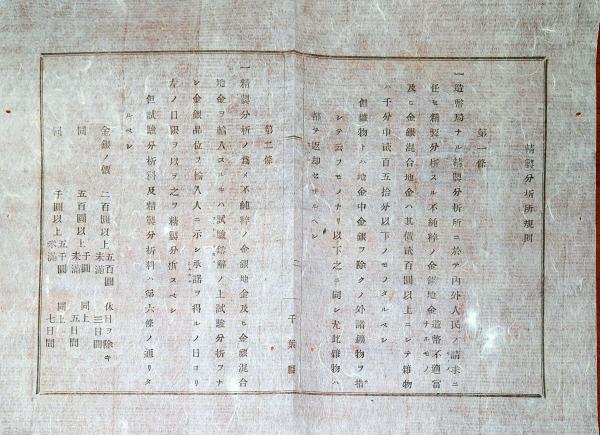 精製分析所規則
第一條
一造幣局ナル精製分析所ニ於テ內外人民ノ請求ニ
任セ精製分析スル不純粹ノ金銀地金造幣不適當ナルモノ
及ヒ金銀混合地金ハ其價貳百圓以上ニシテ雜物
ハ千分中貳百五拾分以下ノモノタルベシ
但雜物トハ地金中金銀ヲ除クノ外諸鑛物ヲ指
シテ云フモノナリ以下之ニ同シ尤此雜物ハ
都テ返却セザルヘシ
千葉縣
第二條
一精製分析ノ爲メ不純粹ノ金銀地金及ヒ金銀混合
地金ヲ輸入スルトキハ試驗鎔解ノ上試驗分析ヲナ
シ金銀品位ヲ輸入人ニ示シ承諾ヲ得ルノ日ヨリ
左ノ日限ヲ以テ之ヲ精製分析スベシ
但試驗分析料及精製分析料ハ第六條ノ通リタ
ルベシ
金銀ノ價 二百圓以上五百圓未滿 休日ヲ除キ三日間
同 五百圓以上千圓未滿 同上五日間
同 千圓以上五千圓未滿 同上七日間